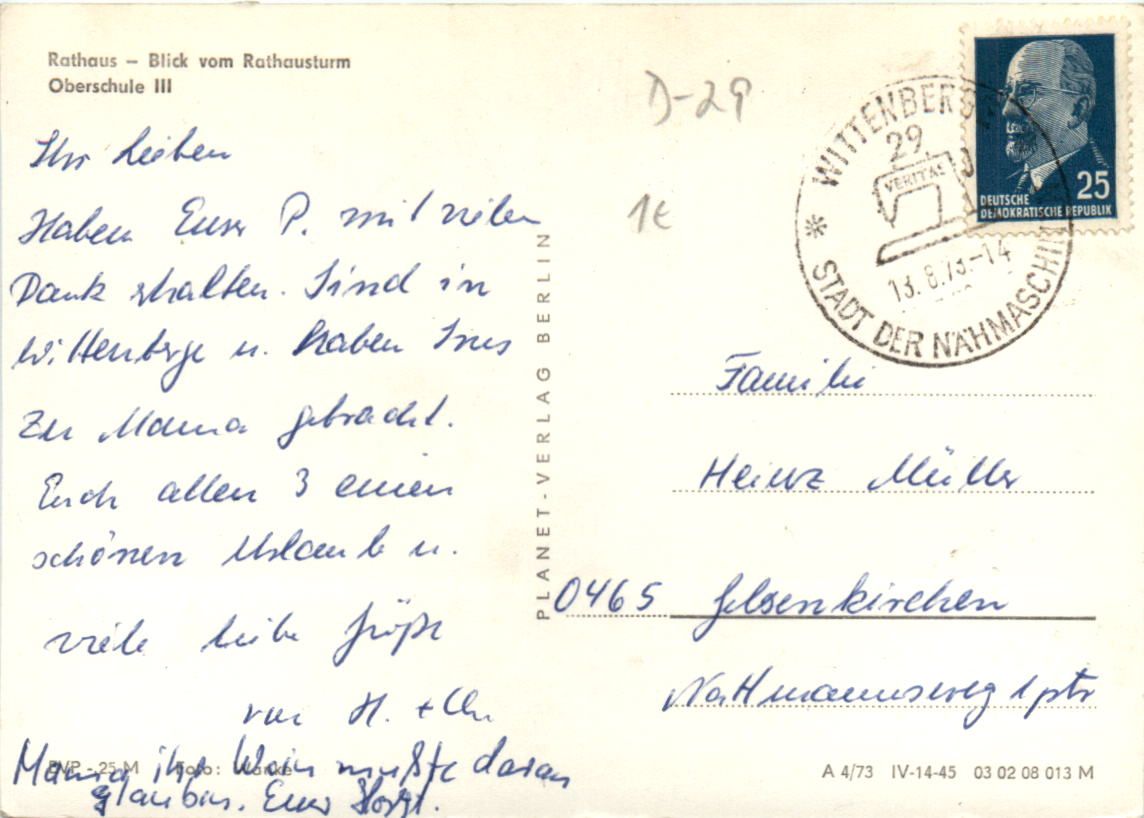 Rathaus – Blick vom Rathausturm
Oberschule III
Ihr Lieben
Haben Euer P. mit vielen
Dank erhalten. Sind in
Wittenberge u. haben Ines
zu Mama gebracht.
Euch allen 3 einen
schönen Urlaub u.
viele liebe Grüße
von H. +
Mama ihr Wein mußte daran
glauben. Euer Horst.
PVP - 25 M Foto: Wanke
PLANET-VERLAG BERLIN
D-29
1€
WITTENBERGE
29
VERITAS
13.8.73.-14
* STADT DER NÄHMASCHIN
25
DEUTSCHE
DEMOKRATISCHE REPUBLIK
Familie
Heinz Müller
0465 Gelsenkirchen
Nattmannsweg 1 ptr
A 4/73 IV-14-45 03 02 08 013 M